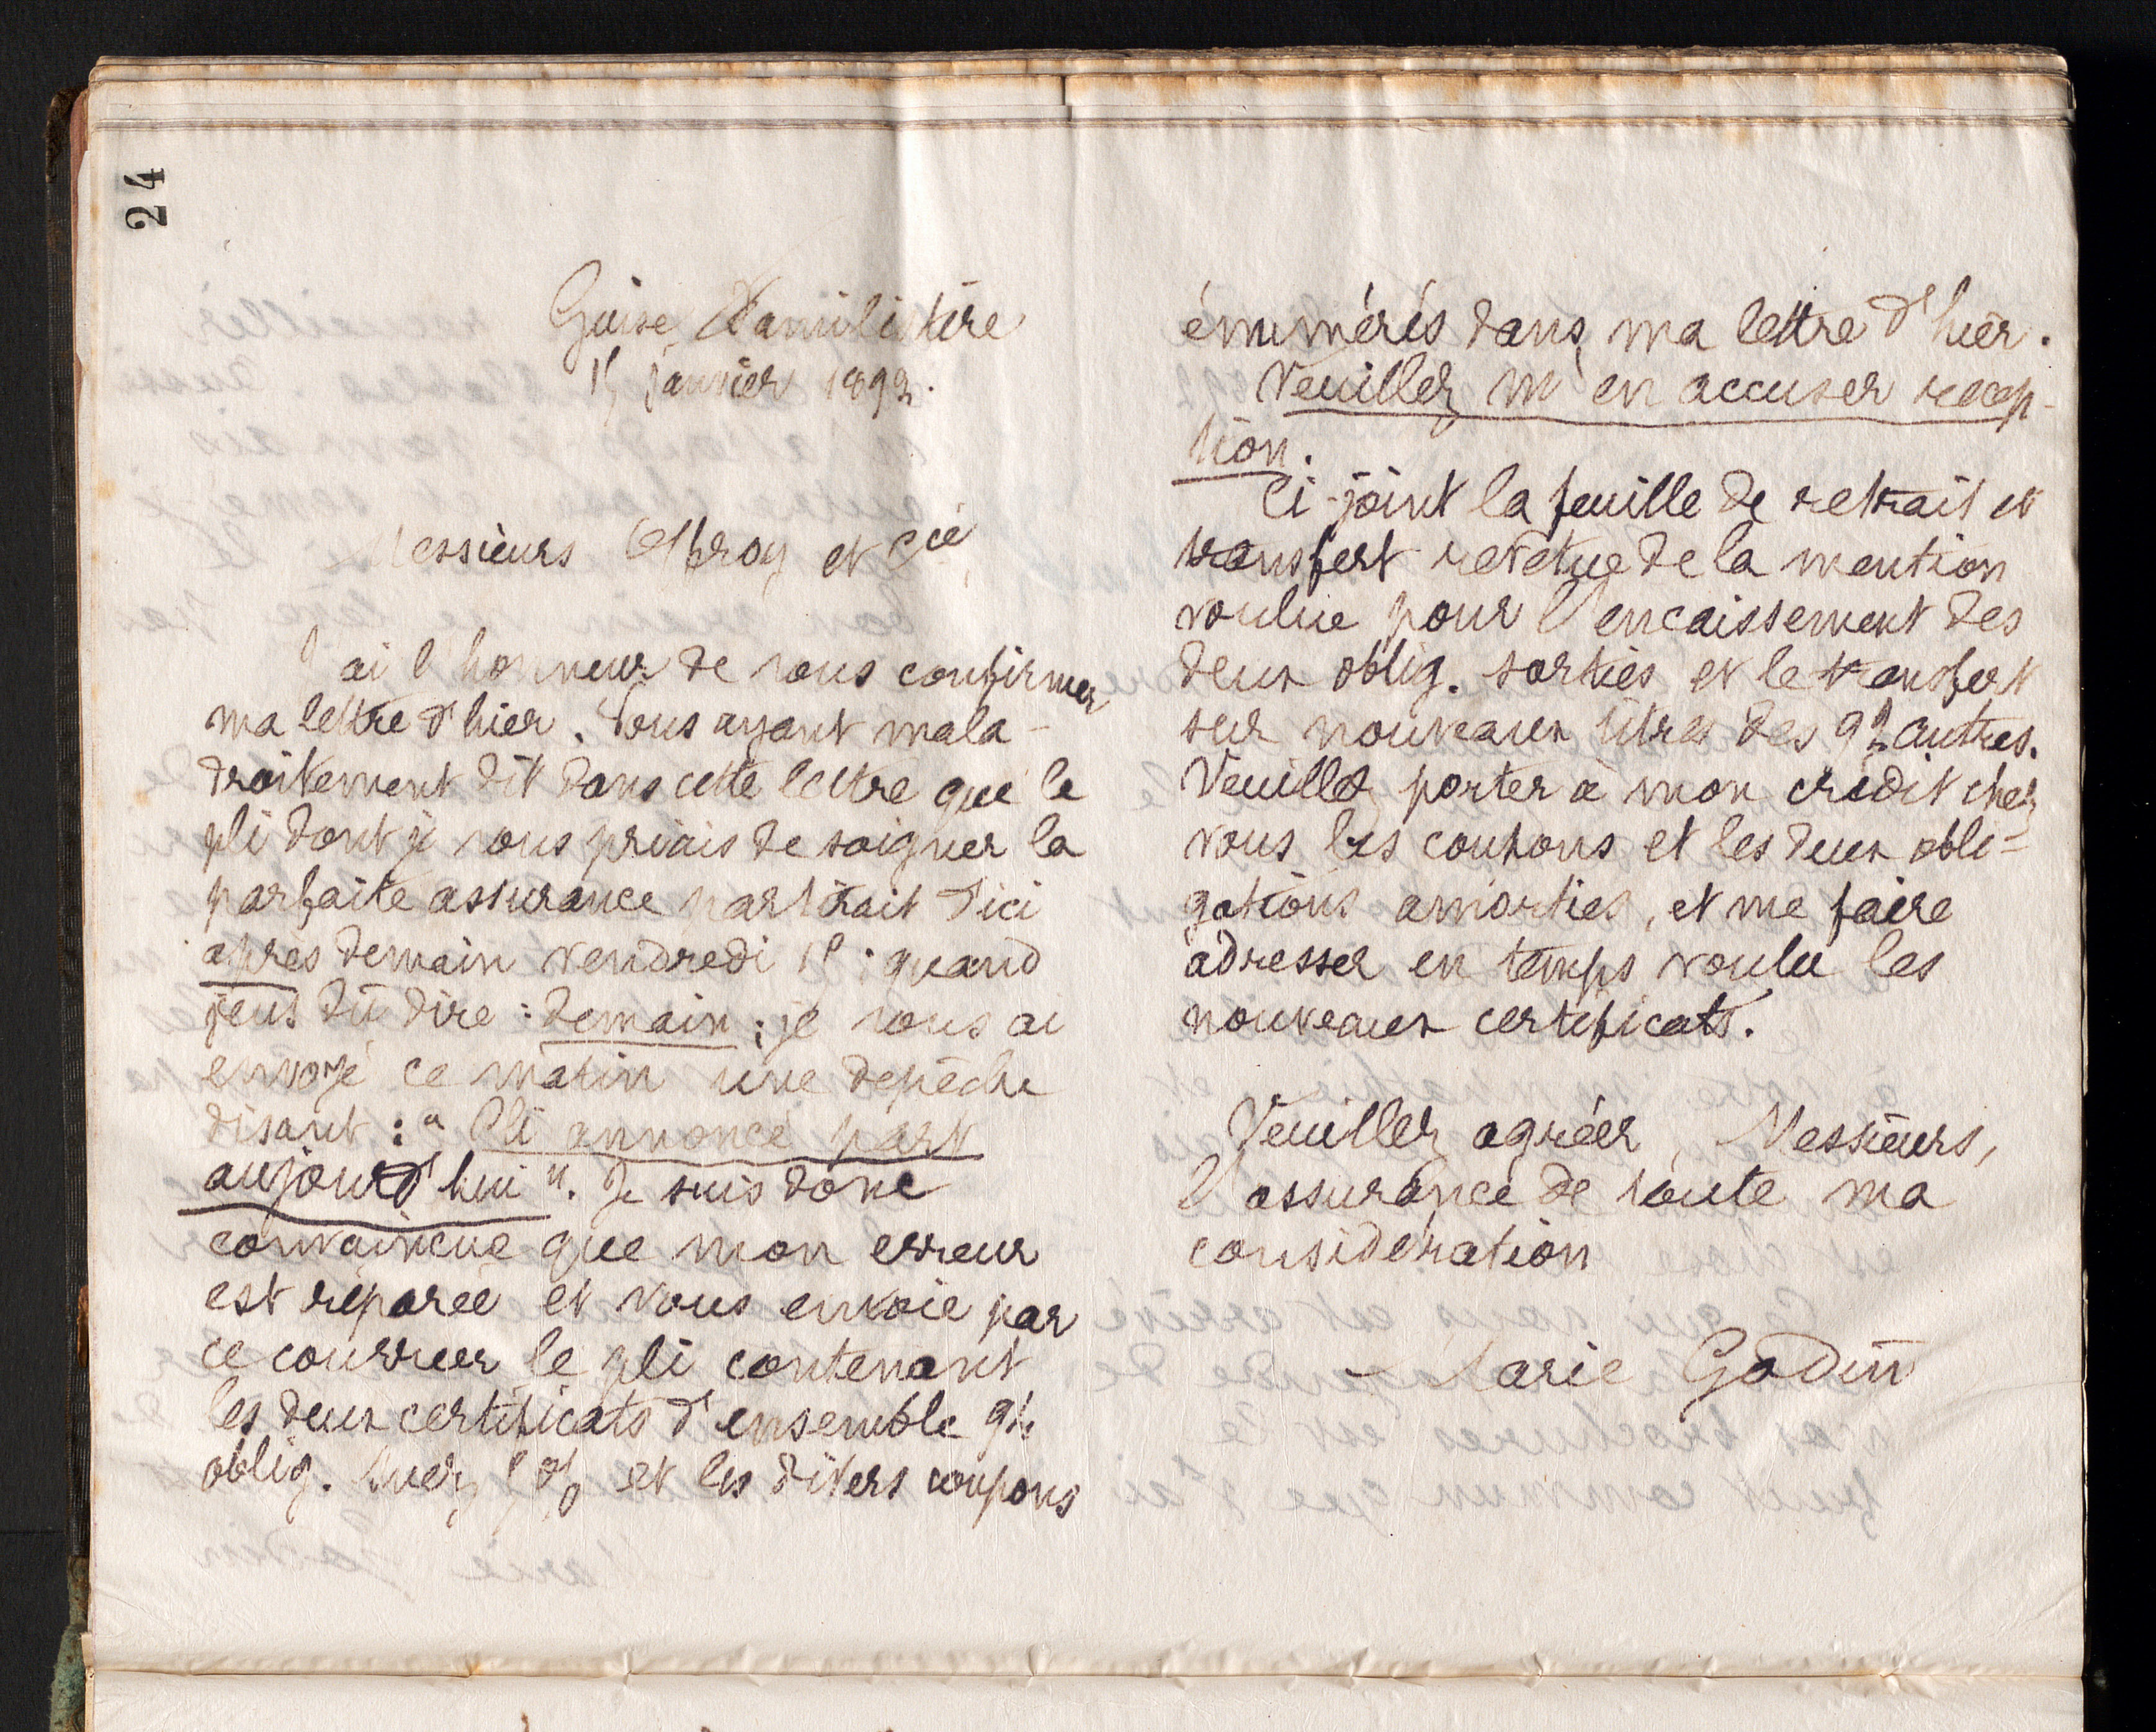 24
Guise Familistère
15 janvier 1892.
Messieurs Offroy et Cie,
J'ai l'honneur de vous confirmer
ma lettre d'hier. Vous ayant mala-
droitement dit dans cette lettre que le
pli dont je vous priais de soigner la
parfaite assurance partirait d'ici
après demain vendredi 15 ; quand
j'eus dû dire : demain ; je vous ai
envoyé ce matin une dépêche
disant : " Pli annoncé part
aujourd'hui ". Je suis donc
convaincue que mon erreur
est réparée et vous envoie par
ce courrier le pli contenant
les deux certificats d'ensemble 94
oblig. Suez 5 % et les divers coupons
énumérés dans ma lettre d'hier.
Veuillez m'en accuser récep-
tion.
Ci-joint la feuille de retrait et
transfert revêtue de la mention
voulue pour l'encaissement des
deux oblig. sorties et le transfert
sur nouveaux titres des 92 autres.
Veuillez porter à mon crédit chez
vous les coupons et les deux obli-
gations amorties, et me faire
adresser en temps voulu les
nouveaux certificats.
Veuillez agréer, Messieurs,
l'assurance de toute ma
considération
Marie Godin